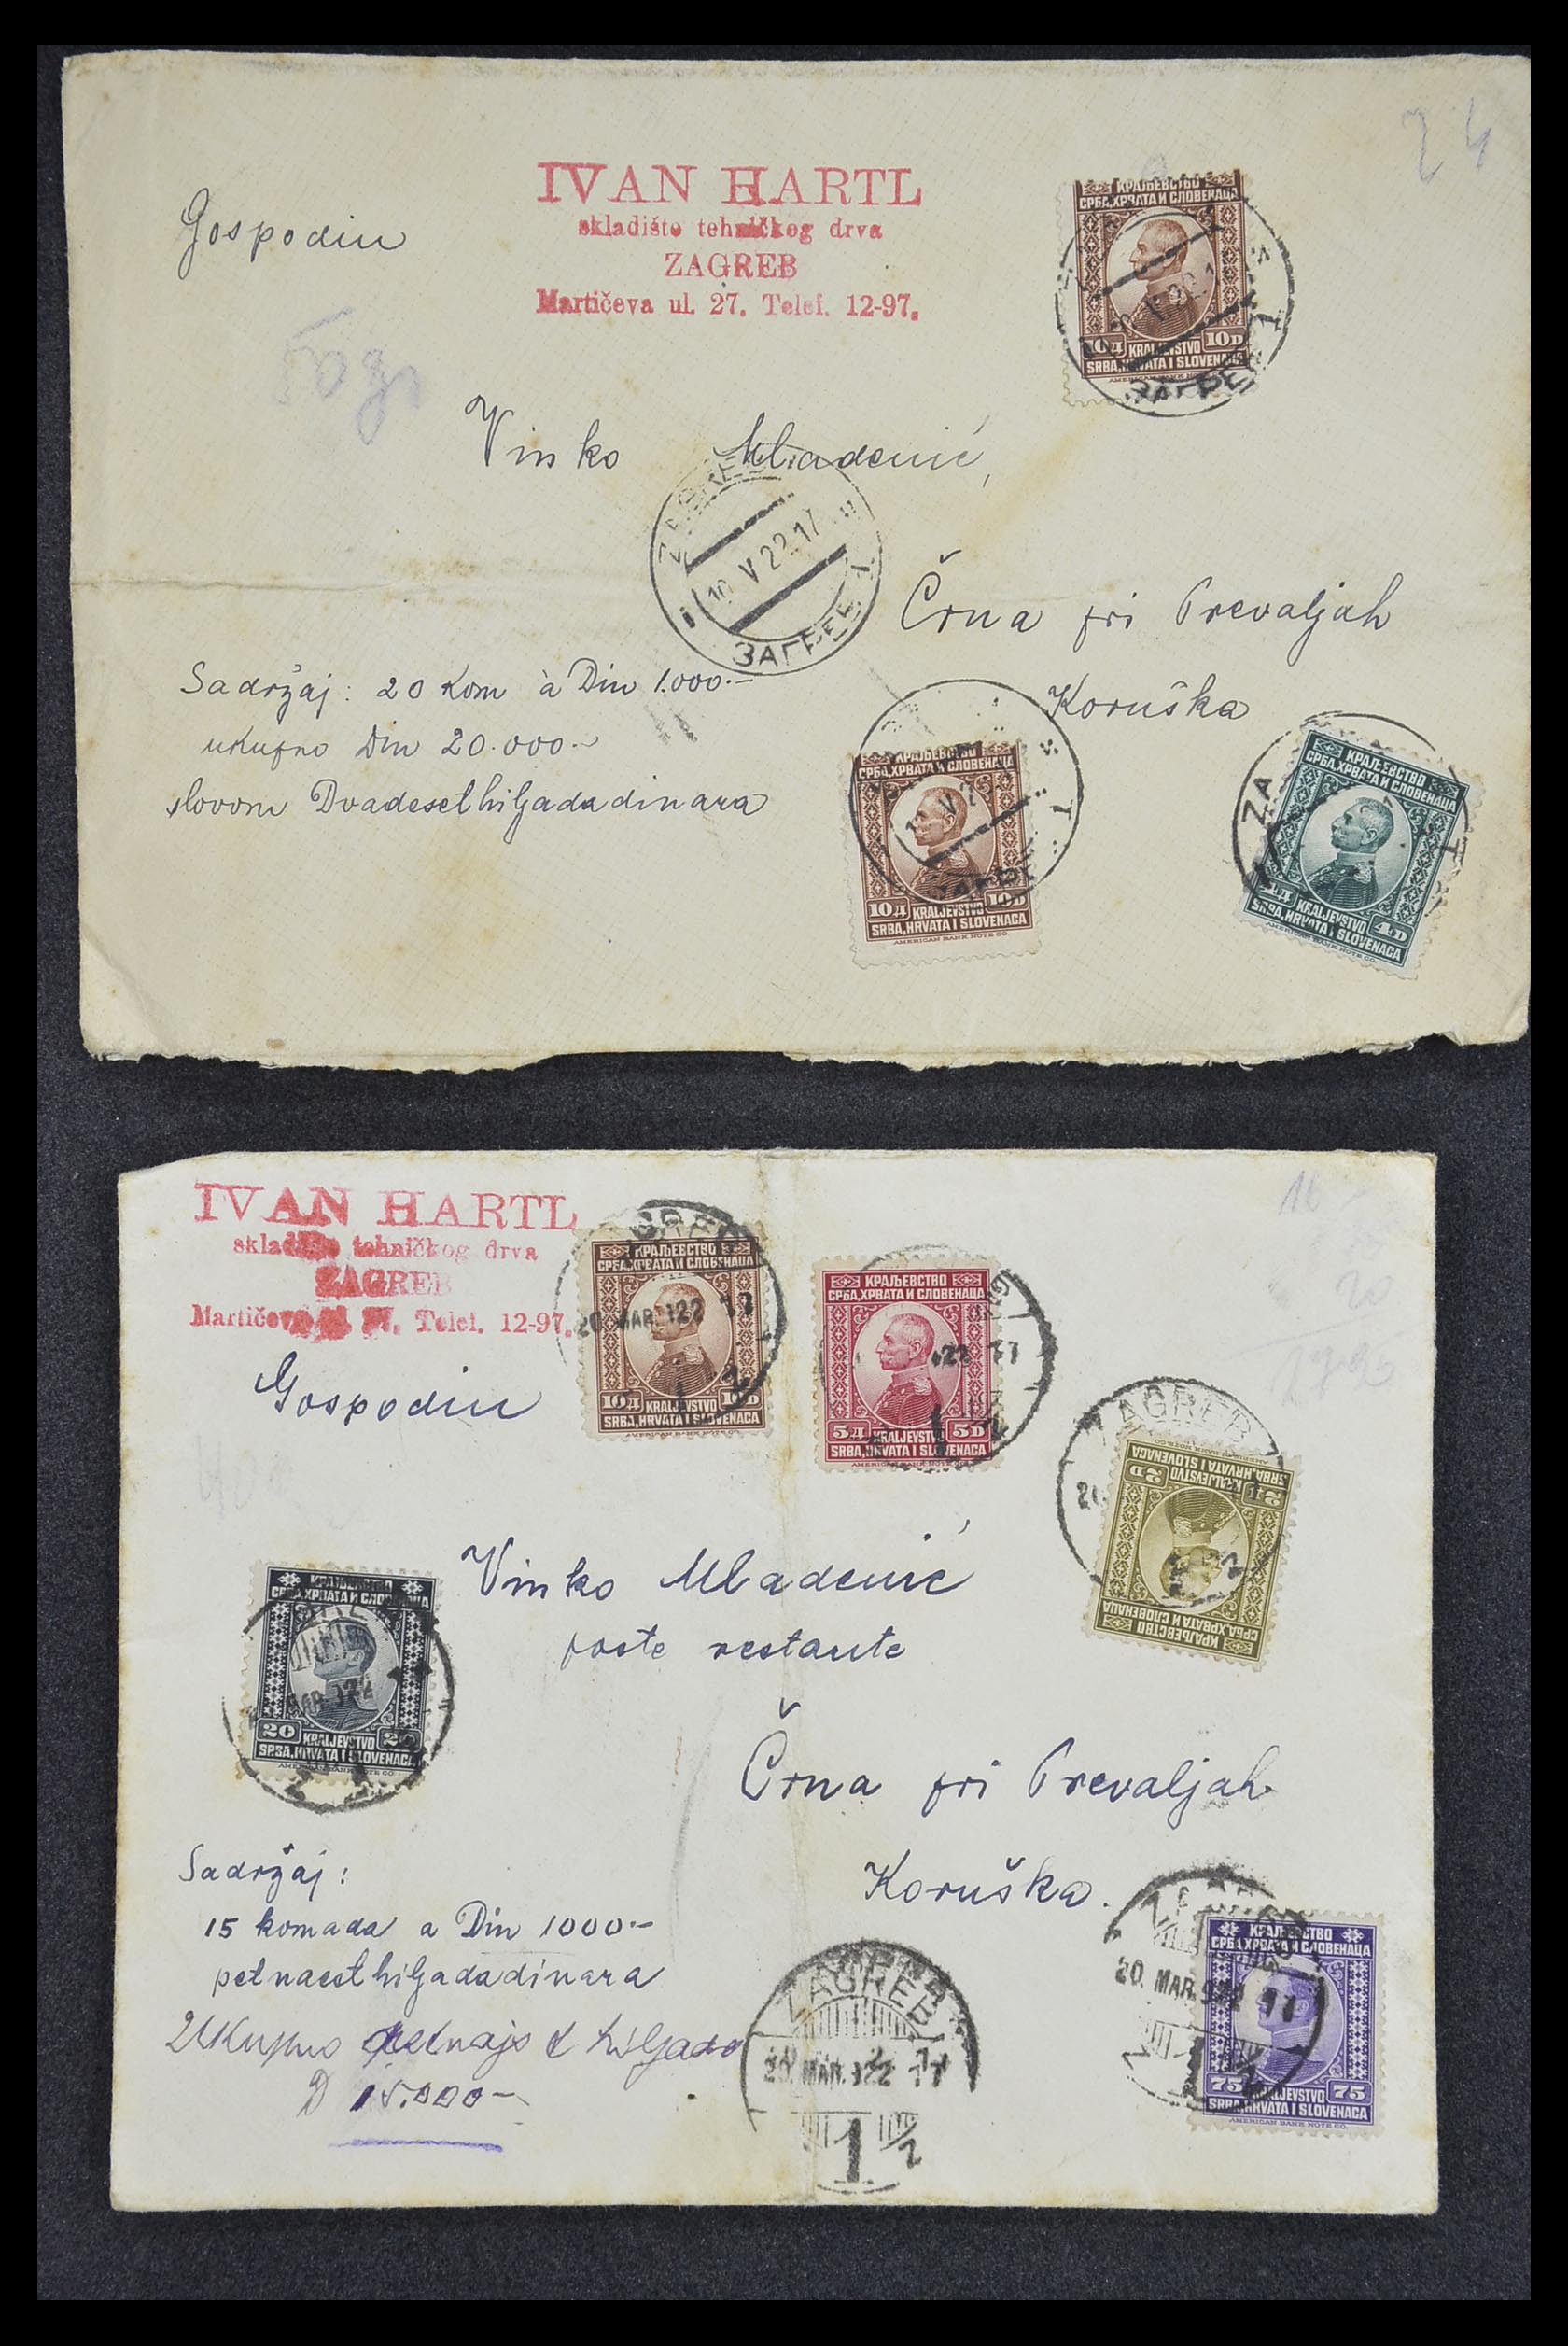 24
IVAN HARTL
skladište tehničkog drva
ZAGREB
Martičeva ul. 27. Telef. 12-97.
Gospodin
КРАЉЕВСТВО
СРБА,ХРВАТА И СЛОВЕНАЦА
10Д KRALJEVSTVO 10D
SRBA,HRVATA I SLOVENACA
ЗАГРЕБ
Vinko Mladenić,
ZAGREB
10 V 22 17
ЗАГРЕБ
Črna pri Prevaljah
Koruška
Sadržaj: 20 Kom à Din 1.000.-
ukupno Din 20.000.-
slovom Dvadesethiljadadinara
КРАЉЕВСТВО
СРБА,ХРВАТА И СЛОВЕНАЦА
10Д KRALJEVSTVO 10D
SRBA,HRVATA I SLOVENACA
AMERICAN BANK NOTE CO.
ZA
КРАЉЕВСТВО
СРБА,ХРВАТА И СЛОВЕНАЦА
4Д KRALJEVSTVO 4D
SRBA,HRVATA I SLOVENACA
AMERICAN BANK NOTE CO.
IVAN HARTL
skladište tehničkog drva
ZAGREB
Martičeva ul. 27. Telef. 12-97.
Gospodin
КРАЉЕВСТВО
СРБА,ХРВАТА И СЛОВЕНАЦА
20 MAR.922 17
10Д KRALJEVSTVO 10D
SRBA,HRVATA I SLOVENACA
КРАЉЕВСТВО
СРБА,ХРВАТА И СЛОВЕНАЦА
922 17
5Д KRALJEVSTVO 5D
SRBA,HRVATA I SLOVENACA
AMERICAN BANK NOTE CO.
ZAGREB
КРАЉЕВСТВО
СРБА,ХРВАТА И СЛОВЕНАЦА
2Д KRALJEVSTVO 2D
SRBA,HRVATA I SLOVENACA
Vinko Mladenić
poste restante
Črna pri Prevaljah
Koruška.
КРАЉЕВСТВО
СРБА,ХРВАТА И СЛОВЕНАЦА
MAR.922
20 KRALJEVSTVO 20
SRBA,HRVATA I SLOVENACA
AMERICAN BANK NOTE CO.
Sadržaj:
15 komada a Din 1000.-
petnaest hiljadadinara
Ukupno petnajst hiljada
D 15.000-
ZAGREB
20. MAR.922 17
1 1/2
ZAGREB
20. MAR.922 17
КРАЉЕВСТВО
СРБА,ХРВАТА И СЛОВЕНАЦА
75 KRALJEVSTVO 75
SRBA,HRVATA I SLOVENACA
AMERICAN BANK NOTE CO.